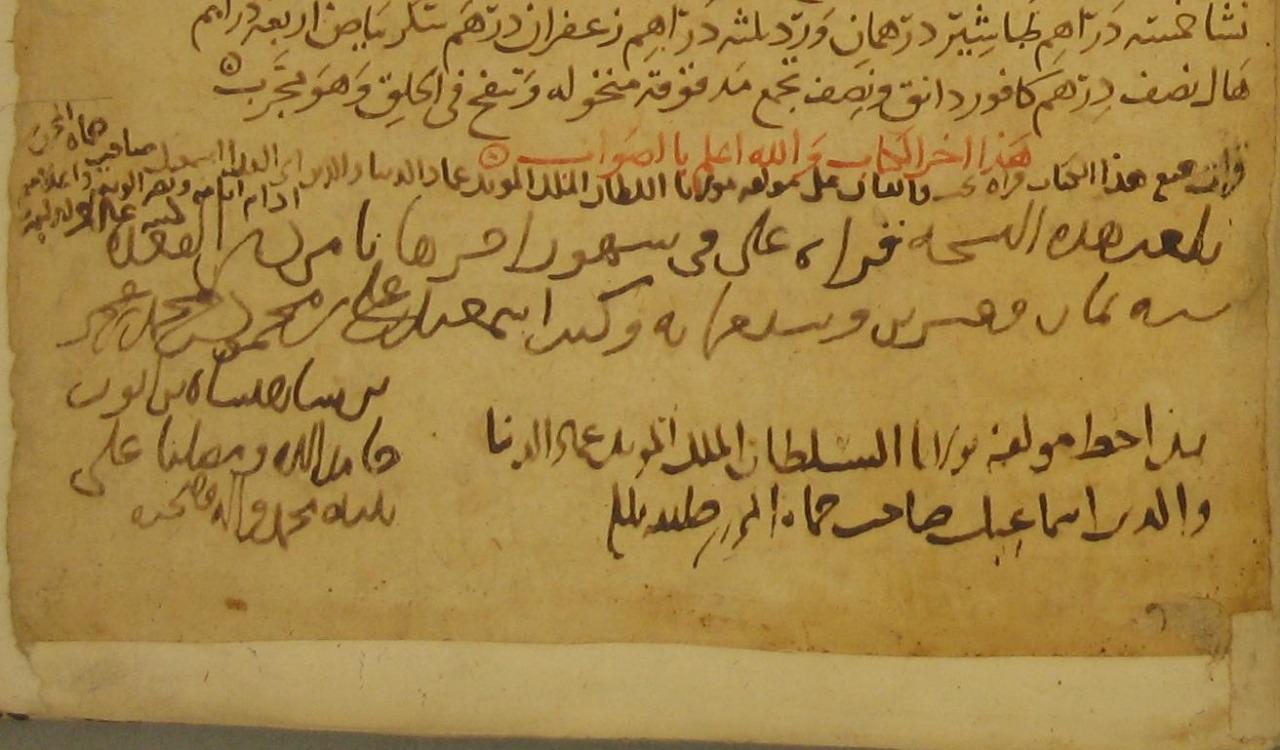 نشا خمسة دراهم طباشير درهمان ورد ثلثه دراهم زعفران درهم سكر بياض اربعة دراهم
هال نصف درهم كافور دانق ونصف تجمع مدقوقة منخوله وتنفخ في الحلق وهو مجرب
هذا اخر الكتاب والله اعلم بالصواب
قرات جميع هذا الكتاب قراه بحث واتقان على مولفه مولانا السلطان الملك المويد عماد الدنيا والدين ابي الفدا اسمعيل صاحب حماه
ادام الله ايامه
بلغت هذه النسخه قراءه علي في شهور اخرها ثامن ذي القعده
سنه ثمان وعشرين وسبعمايه وكتب اسمعيل بن علي بن محمود بن محمد بن عمر
بن شاهنشاه بن ايوب
حامدا لله ومصليا على
نبيه محمد واله وصحبه
هذا خط مولفه مولانا السلطان الملك المويد عماد الدنيا
والدين اسماعيل صاحب حماه